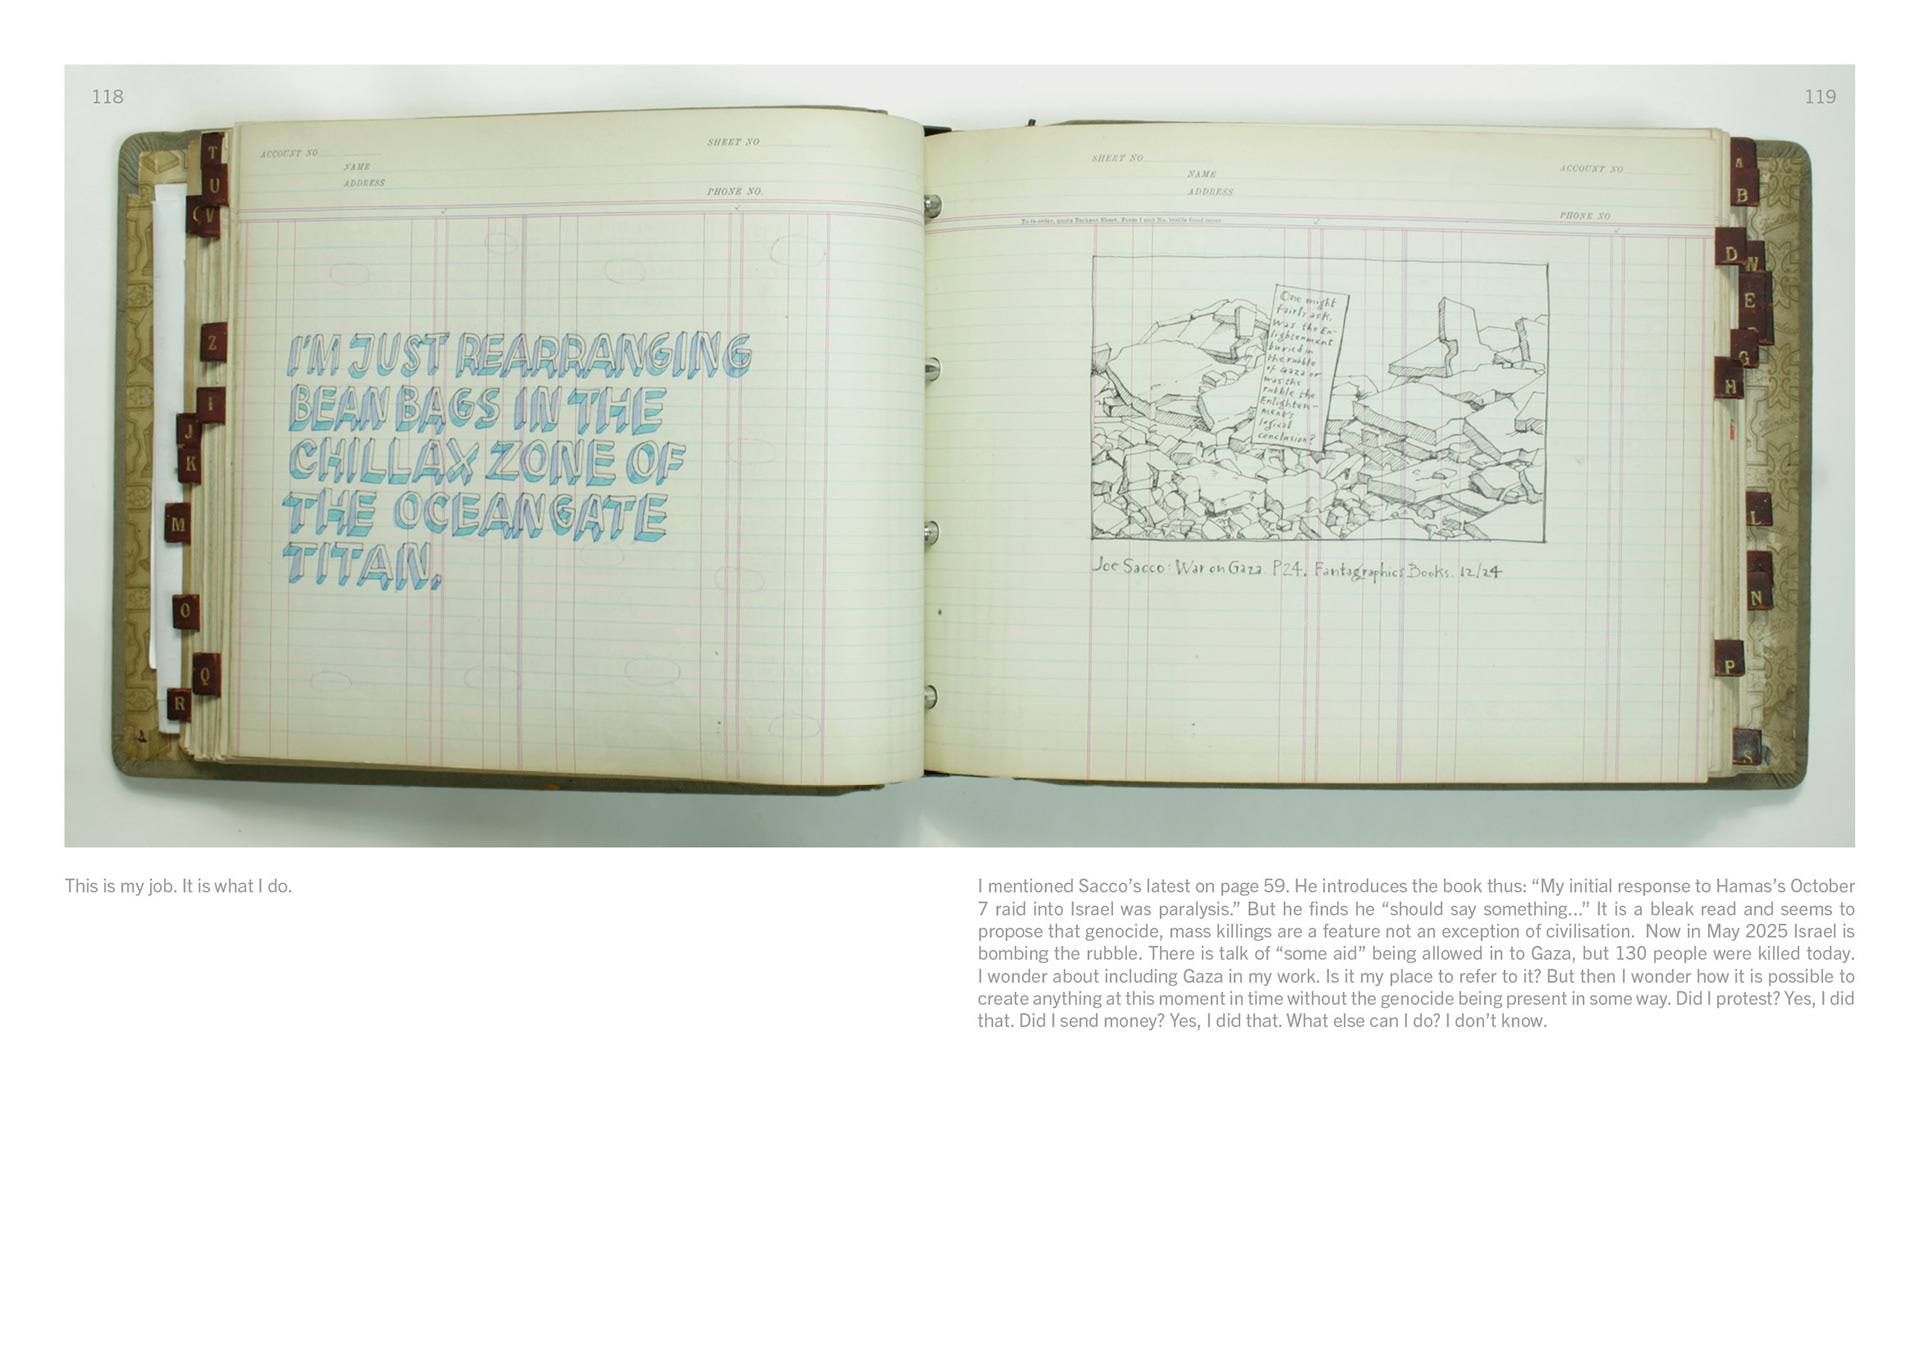 118
119
T
U
V
Z
I
J
K
M
O
Q
R
ACCOUNT NO
SHEET NO
NAME
ADDRESS
PHONE NO.
I'M JUST REARRANGING
BEAN BAGS IN THE
CHILLAX ZONE OF
THE OCEANGATE
TITAN.
SHEET NO
ACCOUNT NO
NAME
ADDRESS
PHONE NO
One might
fairly ask,
was the En-
lightenment
buried in
the rubble
of Gaza or
was the
rubble the
Enlighten-
ment's
logical
conclusion?
Joe Sacco: War on Gaza. P24. Fantagraphics Books. 12/24
A
B
D
N
E
G
H
L
N
P
S
This is my job. It is what I do.
I mentioned Sacco’s latest on page 59. He introduces the book thus: “My initial response to Hamas’s October
7 raid into Israel was paralysis.” But he finds he “should say something...” It is a bleak read and seems to
propose that genocide, mass killings are a feature not an exception of civilisation. Now in May 2025 Israel is
bombing the rubble. There is talk of “some aid” being allowed in to Gaza, but 130 people were killed today.
I wonder about including Gaza in my work. Is it my place to refer to it? But then I wonder how it is possible to
create anything at this moment in time without the genocide being present in some way. Did I protest? Yes, I did
that. Did I send money? Yes, I did that. What else can I do? I don’t know.